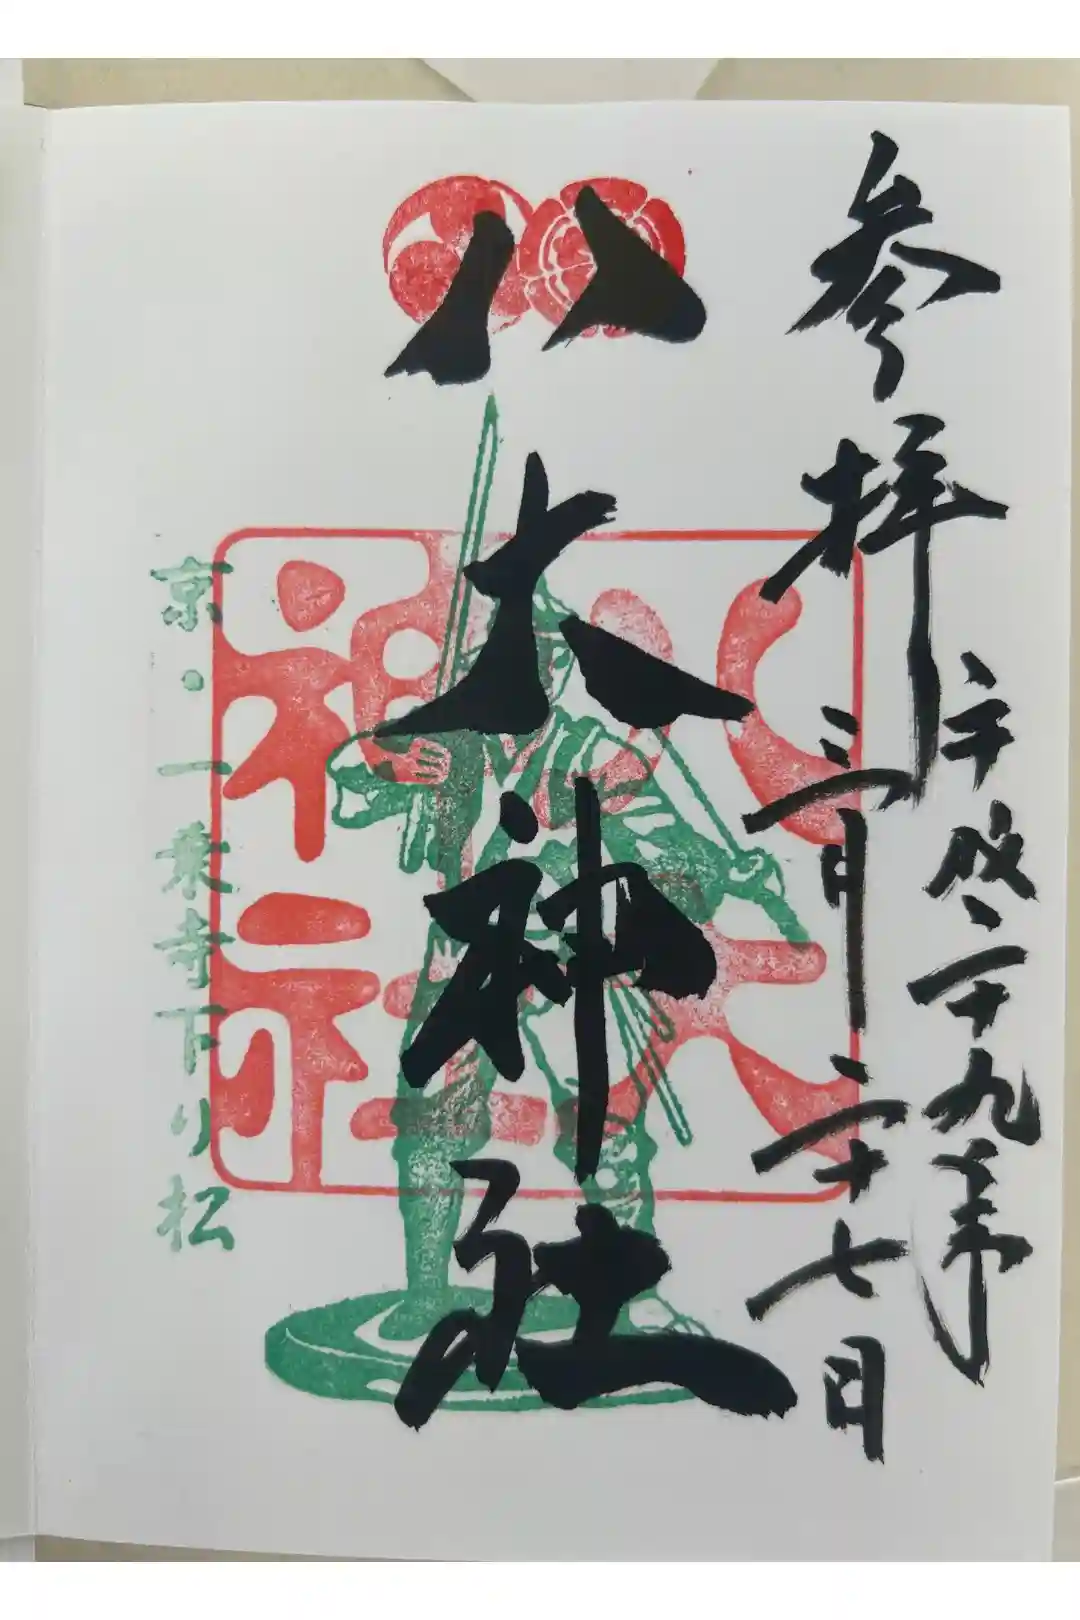 参拝
平成二十九年
三月二十七日
八大神社
八大
神社
京・一乗寺下り松